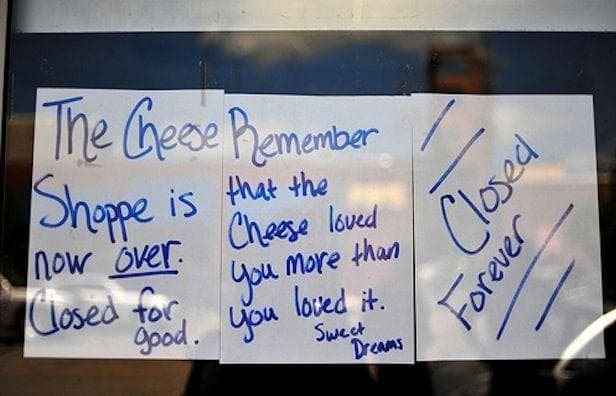 The Cheese
Shoppe is
now over.
Closed for
good.
Remember
that the
Cheese loved
you more than
you loved it.
Sweet
Dreams
Closed
Forever